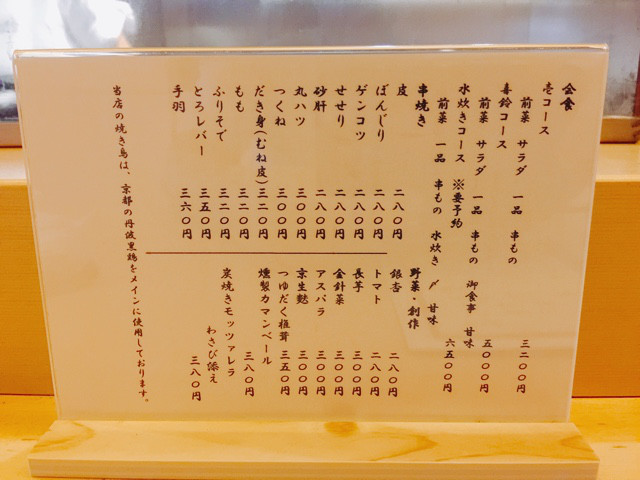 会食
壱コース
前菜 サラダ 一品 串もの 三二〇〇円
喜鈴コース
前菜 サラダ 一品 串もの 御食事 甘味 五〇〇〇円
水炊きコース ※要予約
前菜 一品 串もの 水炊き 〆 甘味 六五〇〇円
串焼き
皮 二八〇円
ぼんじり 二八〇円
ゲンコツ 二八〇円
せせり 二八〇円
砂肝 二八〇円
丸ハツ 三〇〇円
つくね 三〇〇円
だき身(むね皮) 三二〇円
もも 三二〇円
ふりそで 三二〇円
とろレバー 三五〇円
手羽 三六〇円
野菜・創作
銀杏 二八〇円
トマト 二八〇円
長芋 三〇〇円
金針菜 三〇〇円
アスパラ 三〇〇円
京生麩 三〇〇円
つゆだく椎茸 三五〇円
燻製カマンベール 三八〇円
炭焼きモッツァレラ
わさび添え 三八〇円
当店の焼き鳥は、京都の丹波黒鶏をメインに使用しております。